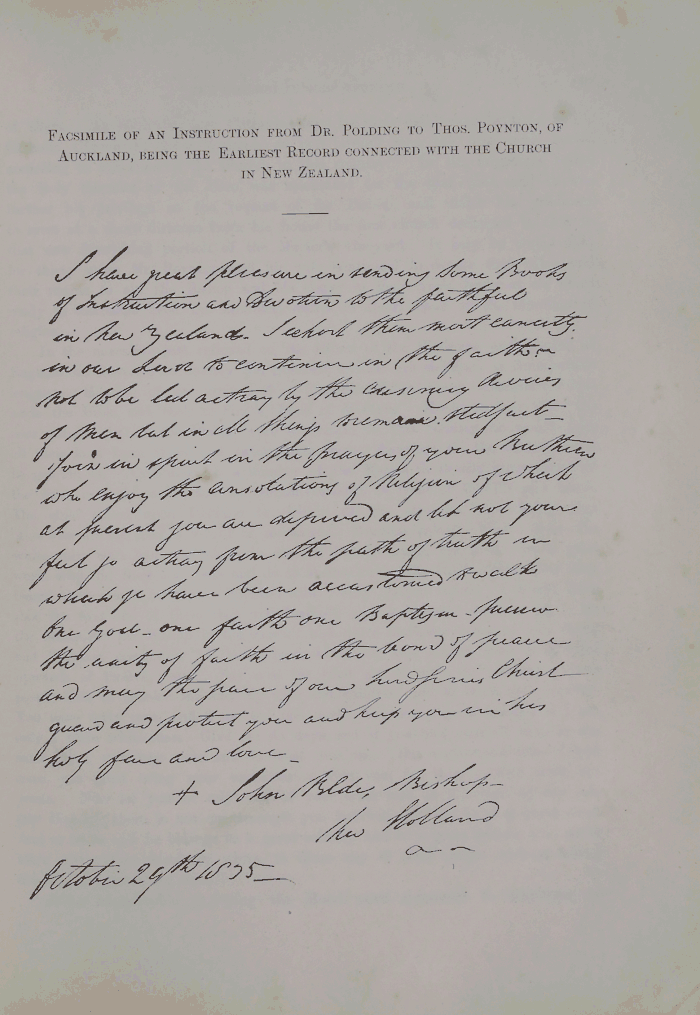 FACSIMILE OF AN INSTRUCTION FROM DR. POLDING TO THOS. POYNTON, OF
AUCKLAND, BEING THE EARLIEST RECORD CONNECTED WITH THE CHURCH
IN NEW ZEALAND.
I have great pleasure in sending some Books
of Instruction and Devotion to the faithful
in New Zealand. I exhort them most earnestly
in our Lord to continue in the faith
not to be led astray by the devices
of men but in all things to remain stedfast
Join in spirit in the prayers of your Brethren
who enjoy the consolations of Religion of which
at present you are deprived and let not your
feet go astray from the path of truth in
which ye have been accustomed to walk
One God - one faith one Baptism -
the unity of faith in the bond of peace
and may the peace of our Lord Jesus Christ
guard and protect you and keep you in his
holy fear and love -
+ John Bede, Bishop
New Holland
October 29th 1835